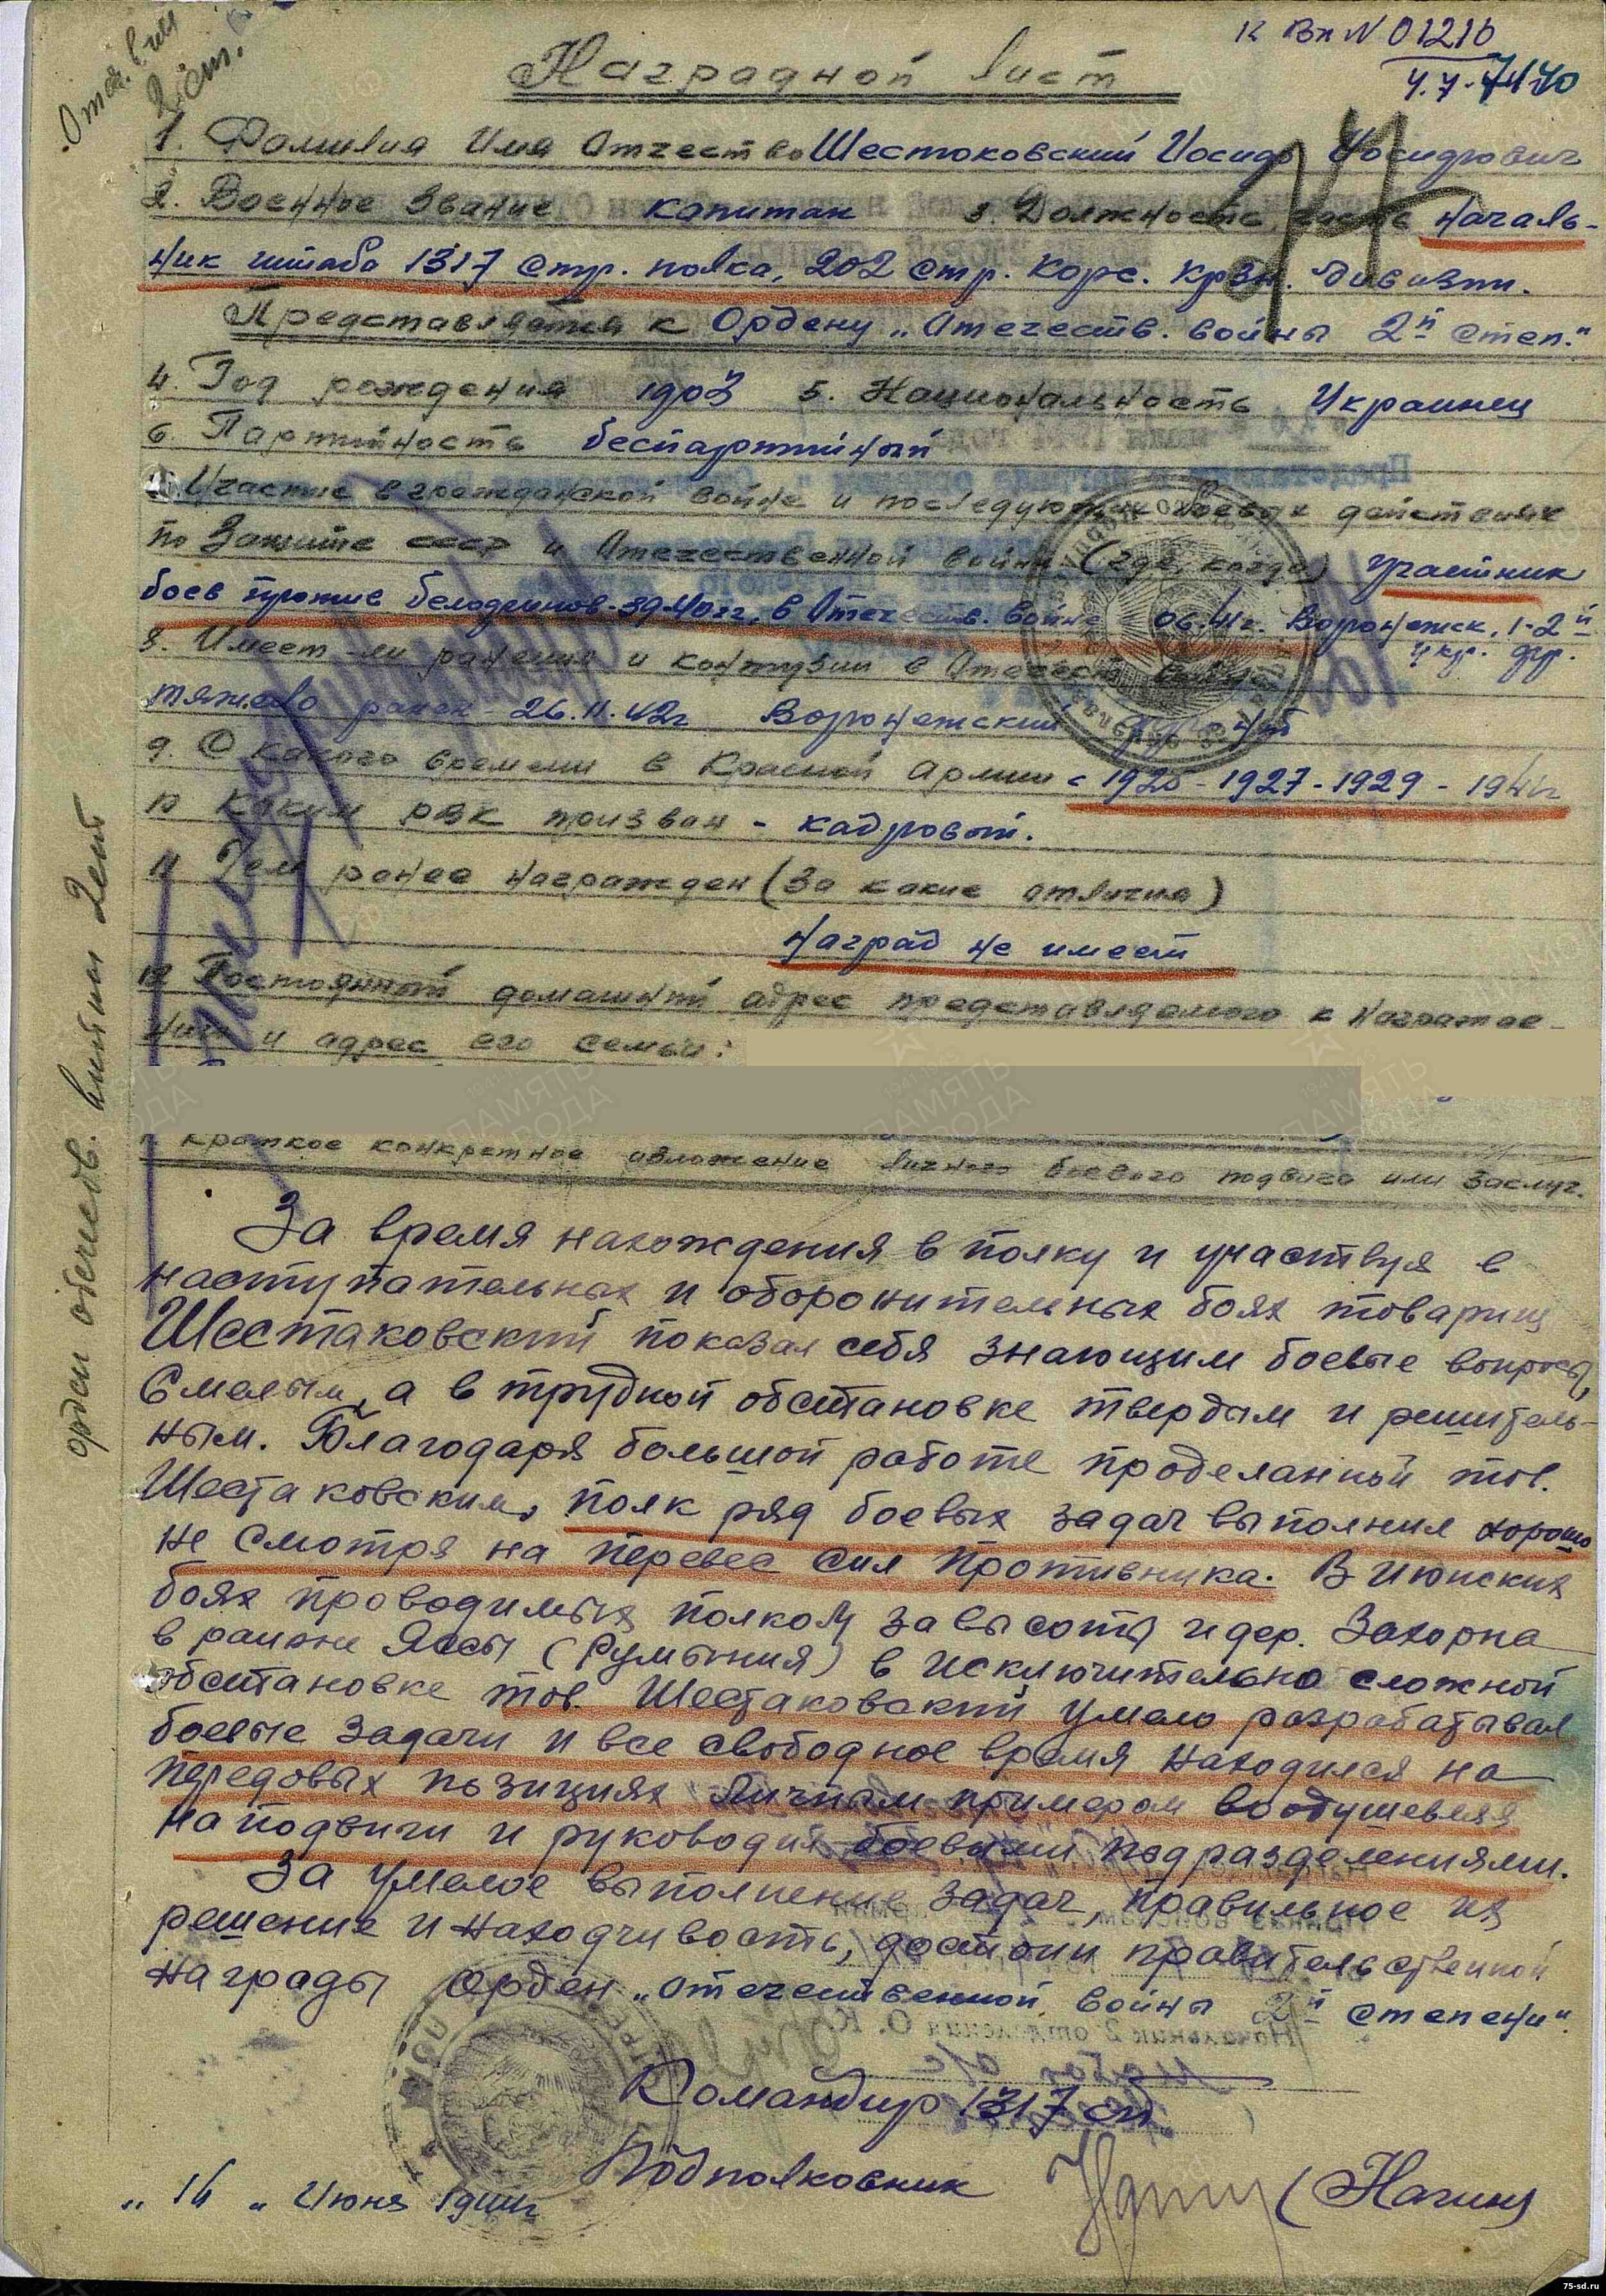 к Вх N 01216
Наградной лист
1. Фамилия Имя Отчество Шестоковский Иосиф Иосифович
2. Военное звание капитан 3. Должность, часть началь-
ник штаба 1317 стр. полка, 202 стр. Корс. Крзн. дивизии.
Представляется к Ордену „Отечеств. войны 2й степ."
4. Год рождения 1903 5. Национальность Украинец
6. Партийность беспартийный
7. Участие в гражданской войне и последующих боевых действиях
по защите СССР и Отечественной войне (где, когда) участник
боев против белофинов-39-40гг, в Отечеств. войне 06.41г. Воронежск, 1-2й
укр. фр.
8. Имеет-ли ранения и контузии в Отечеств. войне
тяжело ранен 26.11.42г Воронежский фронт
9. С какого времени в Красной армии с 1925-1927-1929-1941г
10 Каким РВК призван - кадровый.
11 Чем ранее награжден (за какие отличия)
наград не имеет
12 Постоянный домашний адрес представляемого к награжде-
нию и адрес его семьи:
Краткое конкретное изложение личного боевого подвига или заслуг.
За время нахождения в полку и участвуя в
наступательных и оборонительных боях товарищ
Шестаковский показал себя знающим боевые вопросы,
смелым, а в трудной обстановке твердым и решитель-
ным. Благодаря большой работе проделанной тов.
Шестаковским, полк ряд боевых задач выполнил хорошо
не смотря на перевес сил противника. В июньских
боях проводимых полком за высоты и дер. Захорна
в районе Яссы (Румыния) в исключительно сложной
обстановке тов. Шестаковский умело разрабатывал
боевые задачи и все свободное время находился на
передовых позициях личным примером воодушевляя
на подвиги и руководил боевыми подразделениями.
За умелое выполнение задач, правильное их
решение и находчивость, достоин правительственной
награды орден „Отечественной войны 2й степени".
Командир 1317 сп
Подполковник (Нагин)
„ 14 „ Июня 1944г
орден отечеств. войны 2 степ
75-sd.ru